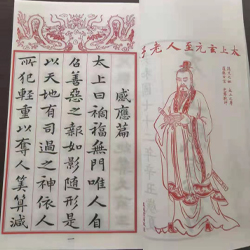 太上玄元至人老子
感應篇
太上曰禍福無門唯人自
召善惡之報如影隨形是
以天地有司過之神依人
所犯輕重以奪人算算減